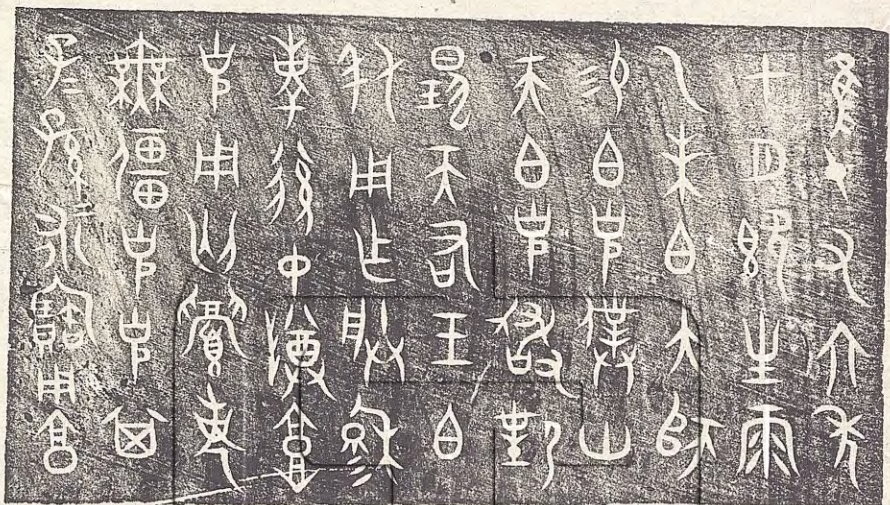 隹十又六年
七月既生霸
乙未白大師
易白克僕卅
夫白克敢對
揚天君王白
休用乍朕穆
考後中尊壺
克用匄眉壽
無疆克克其
子=孫=永寶用享